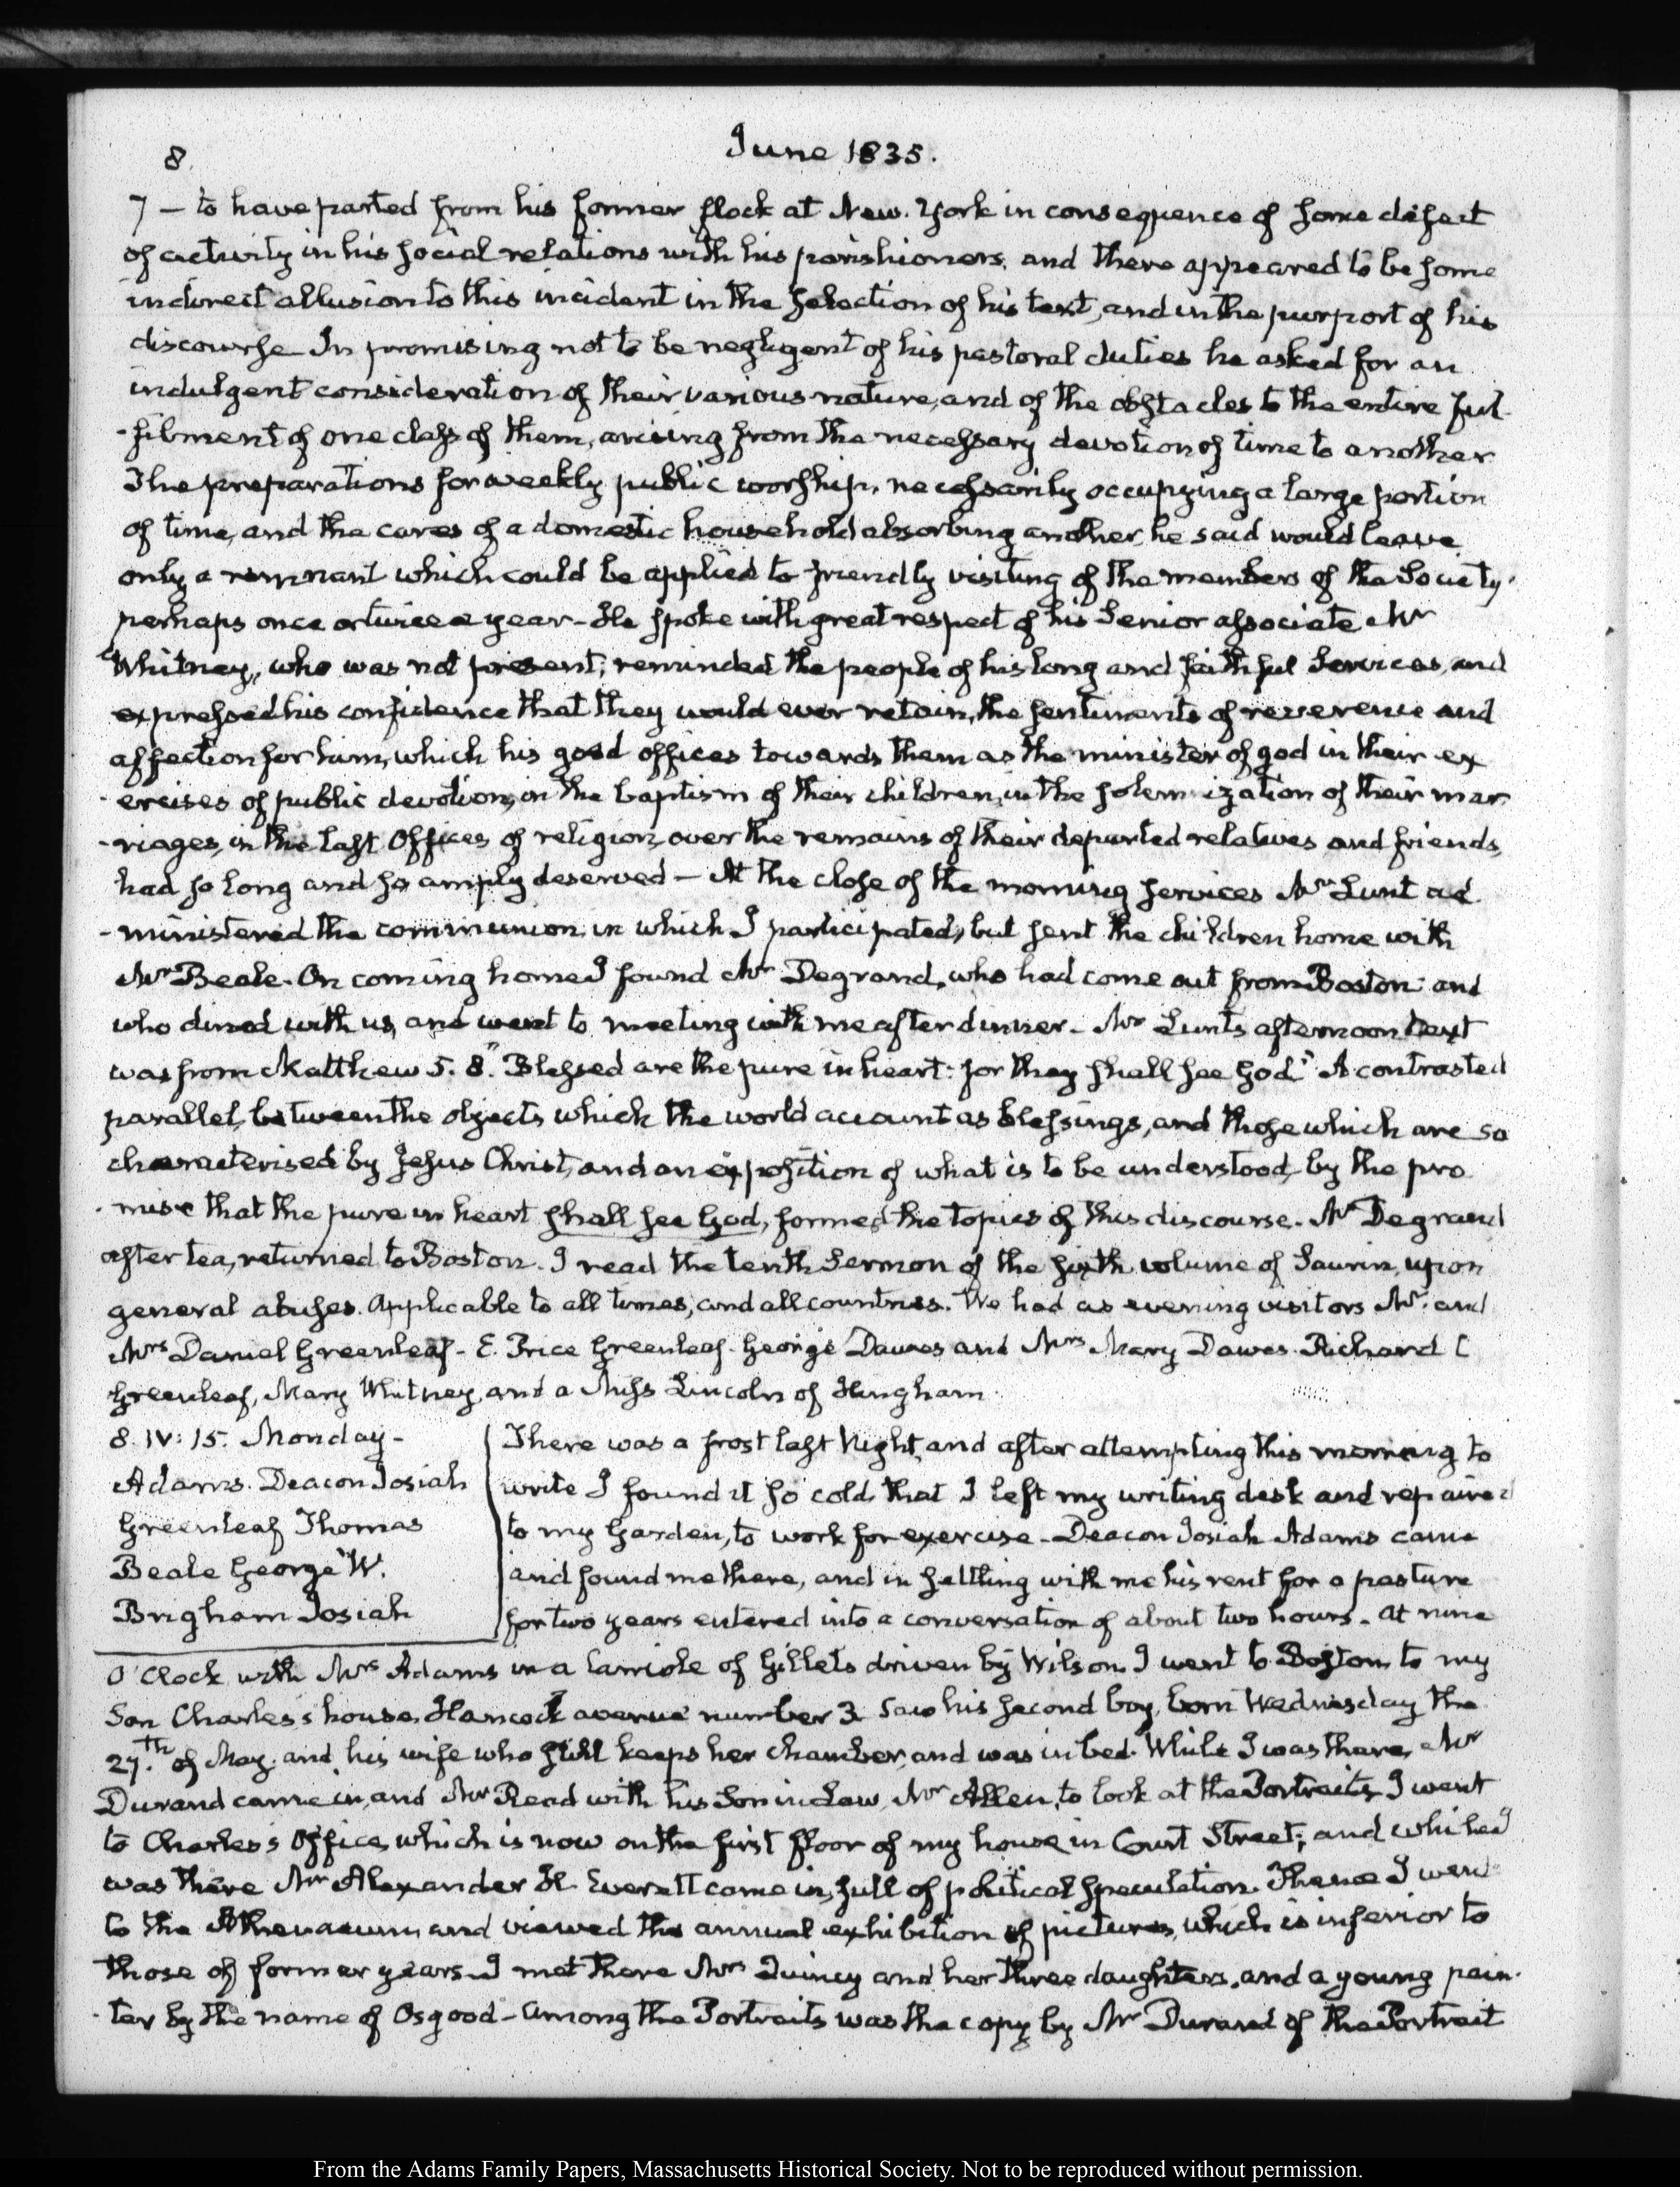 8.
June 1835.
7 — to have parted from his former flock at New-York in consequence of some defect
of activity in his social relations with his parishioners, and there appeared to be some
indirect allusion to this incident in the selection of his text, and in the purport of his
discourse — In promising not to be negligent of his pastoral duties he asked for an
indulgent consideration of their various nature, and of the obstacles to the entire ful-
-filment of one class of them, arising from the necessary devotion of time to another
The preparations for weekly public worship, necessarily occupying a large portion
of time, and the cares of a domestic household absorbing another, he said would leave
only a remnant which could be applied to friendly visiting of the members of the Society,
perhaps once or twice a year — He spoke with great respect of his Senior associate Mr
Whitney, who was not present; reminded the people of his long and faithful Services, and
expressed his confidence that they would ever retain, the sentiments of reverence and
affection for him, which his good offices towards them as the minister of god in their ex
-ercises of public devotion, in the baptism of their children, in the solemnization of their mar
-riages, in the last Offices of religion over the remains of their departed relatives and friends,
had so long and so amply deserved — At the close of the morning services Mr Lunt ad
-ministered the communion in which I participated, but sent the children home with
Mr Beale. On coming home I found Mr Degrand, who had come out from Boston and
who dined with us, and went to meeting with me after dinner — Mr Lunt's afternoon text
was from Matthew 5. 8. "Blessed are the pure in heart: for they shall see God." A contrasted
parallel, between the objects which the world account as blessings, and those which are so
characterised by Jesus Christ, and an exposition of what is to be understood by the pro
-mise that the pure in heart shall see God, formed the topics of this discourse. Mr Degrand
after tea, returned to Boston. I read the tenth Sermon of the sixth volume of Saurin, upon
general abuses. Applicable to all times, and all countries. We had as evening visitors Mr. and
Mrs Daniel Greenleaf — E. Price Greenleaf — George Dawes and Mrs Mary Dawes. Richard C
Greenleaf, Mary Whitney, and a Miss Lincoln of Hingham
8. IV: 15. Monday —
Adams. Deacon Josiah
Greenleaf Thomas
Beale George W.
Brigham Josiah
There was a frost last Night, and after attempting this morning to
write I found it so cold, that I left my writing desk and repaired
to my Garden, to work for exercise — Deacon Josiah Adams came
and found me there, and in settling with me his rent for a pasture
for two years entered into a conversation of about two hours. At nine
O'Clock with Mrs Adams in a Carriole of Gillets driven by Wilson I went to Boston to my
Son Charles's house, Hancock avenue number 3 saw his second boy, born Wednesday the
27.th of May. and his wife who still keeps her chamber, and was in bed. While I was there, Mr
Durand came in, and Mr Read with his Son in Law, Mr Allen, to look at the Portraits, I went
to Charles's Office, which is now on the first floor of my house in Court Street; and while I
was there Mr Alexander H. Everett came in, full of political speculation. Thence I went
to the Athenaeum and viewed the annual exhibition of pictures, which is inferior to
those of former years. I met there Mrs Quincy and her three daughters, and a young pain-
-ter by the name of Osgood — Among the Portraits was the copy by Mr Durand of the Portrait
From the Adams Family Papers, Massachusetts Historical Society. Not to be reproduced without permission.